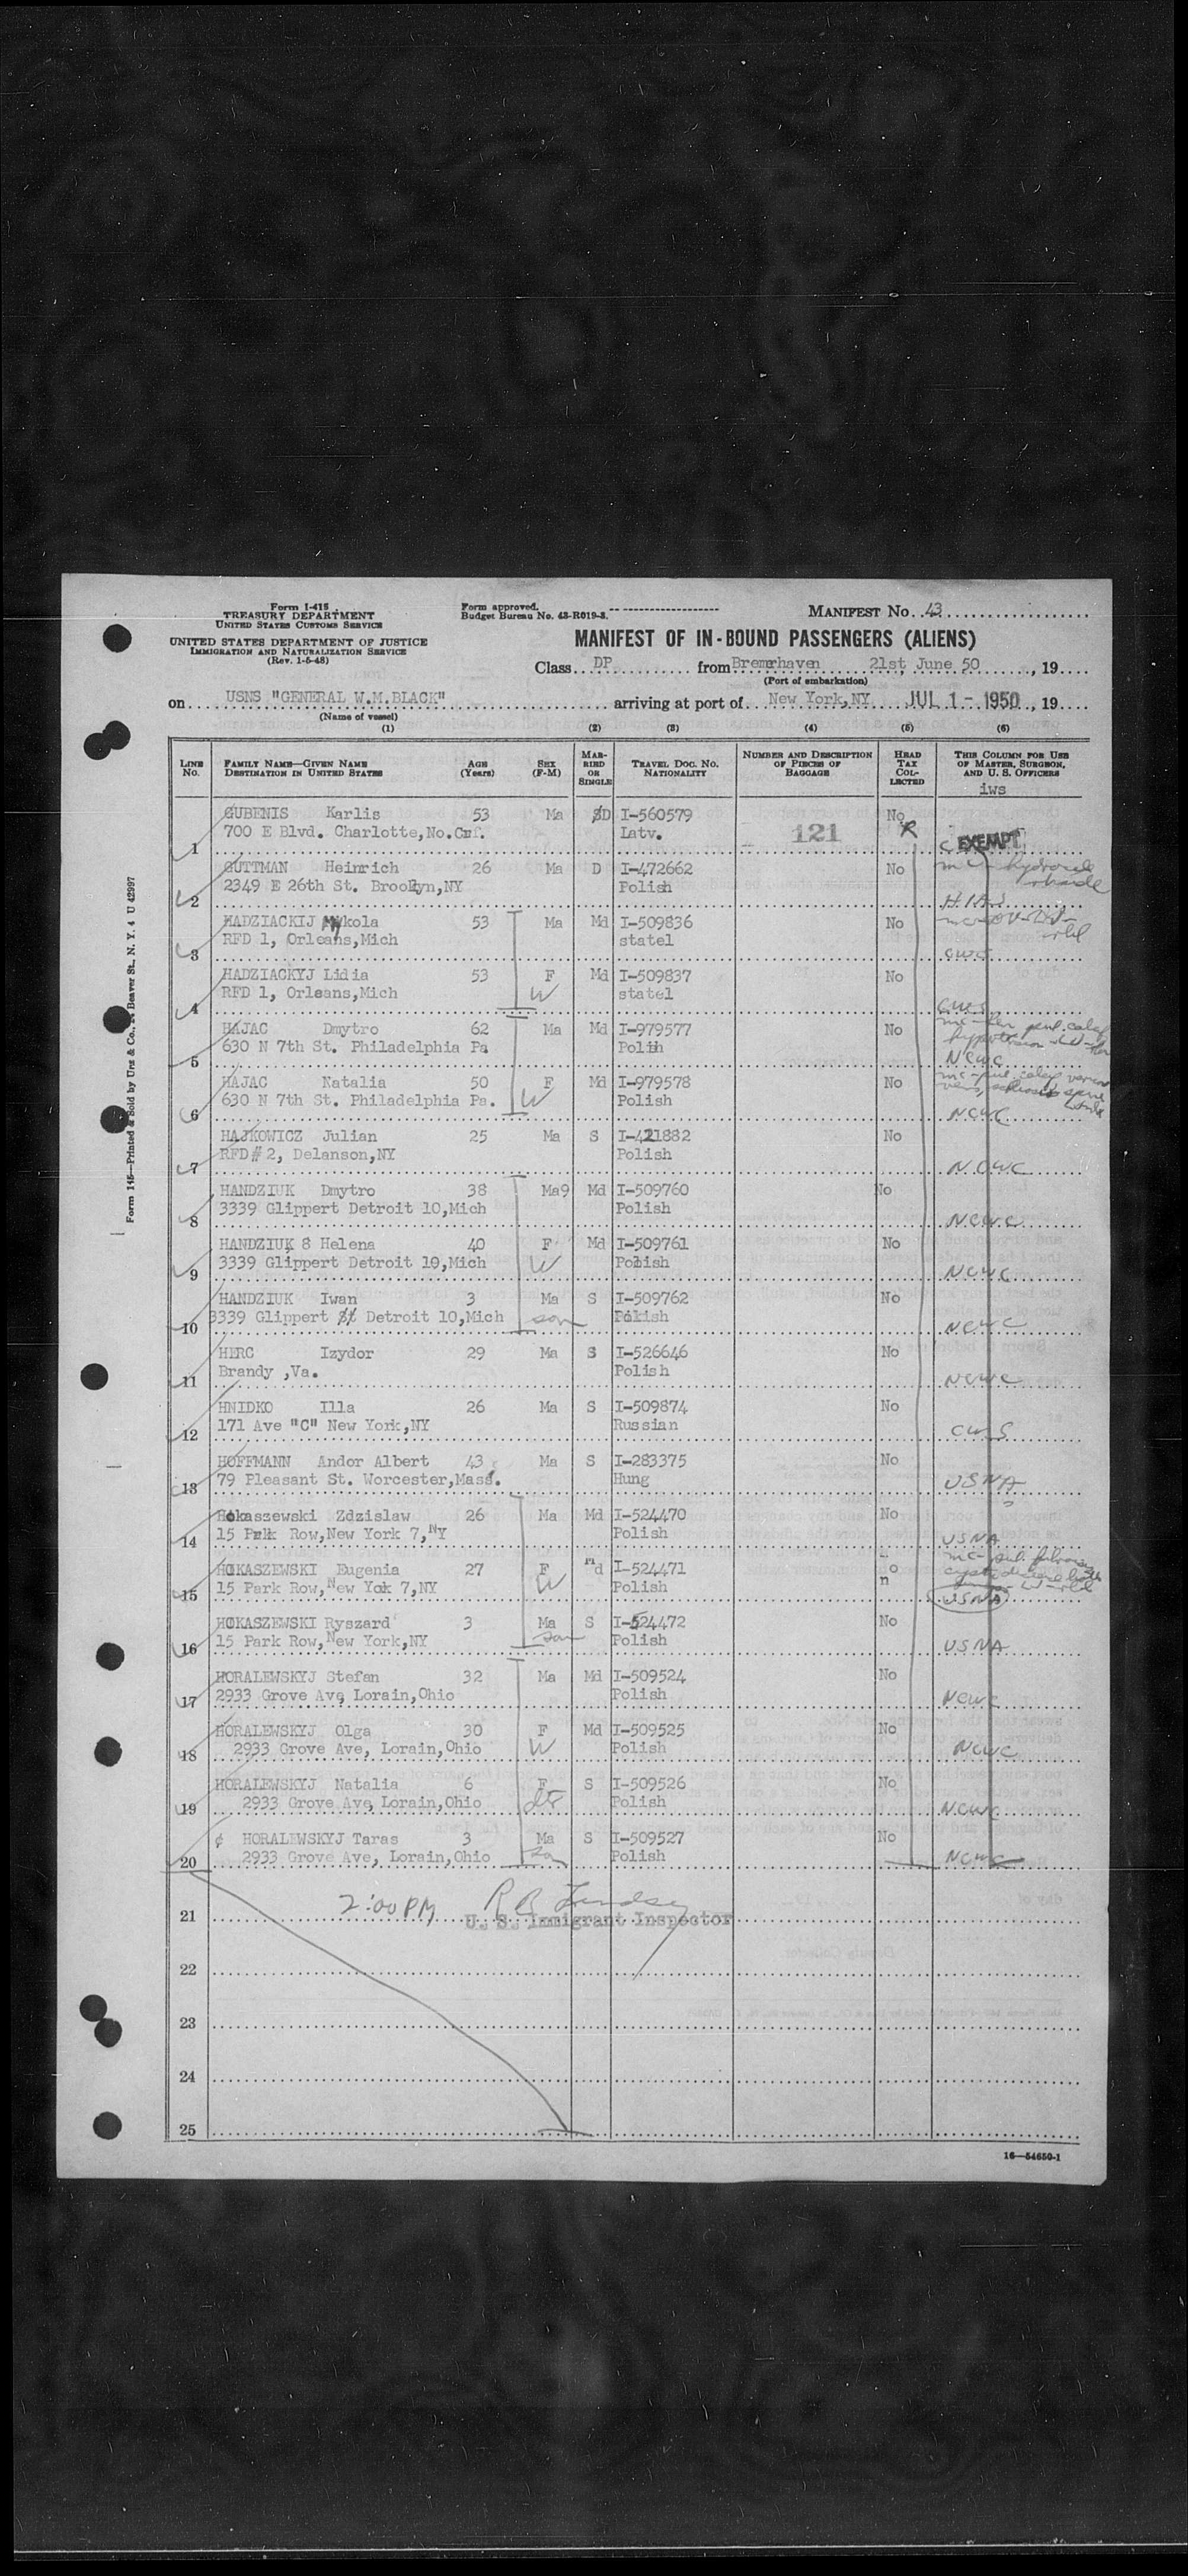 Form I-415
TREASURY DEPARTMENT
UNITED STATES CUSTOMS SERVICE
UNITED STATES DEPARTMENT OF JUSTICE
IMMIGRATION AND NATURALIZATION SERVICE
(Rev. 1-5-48)
Form approved.
Budget Bureau No. 43-R019-3.
MANIFEST No. 43
MANIFEST OF IN-BOUND PASSENGERS (ALIENS)
Class DP from Bremerhaven 21st, June 50, 19
(Port of embarkation)
on USNS "GENERAL W.M.BLACK" arriving at port of New York,NY JUL 1 - 1950, 19
(Name of vessel)
(1) (2) (3) (4) (5) (6)
LINE No. FAMILY NAME—GIVEN NAME DESTINATION IN UNITED STATES AGE (Years) SEX (F-M) MARRIED OR SINGLE TRAVEL DOC. NO. NATIONALITY NUMBER AND DESCRIPTION OF PIECES OF BAGGAGE HEAD TAX COLLECTED THIS COLUMN FOR USE OF MASTER, SURGEON, AND U. S. OFFICERS
iws
GUBENIS Karlis 53 Ma D I-560579 No
700 E Blvd. Charlotte,No.Car. Latv. 121
1 EXEMPT
GUTTMAN Heinrich 26 Ma D I-472662 No mc- hydrocele
2349 E 26th St. Brooklyn,NY Polish
2 HIAS
HADZIACKIJ Mykola 53 Ma Md I-509836 No
RFD 1, Orleans,Mich statel
3 CWS
HADZIACKYJ Lidia 53 F Md I-509837 No
RFD 1, Orleans,Mich W statel
4 CWS
HAJAC Dmytro 62 Ma Md I-979577 No
630 N 7th St. Philadelphia Pa Polish
5 NCWC
HAJAC Natalia 50 F Md I-979578 No
630 N 7th St. Philadelphia Pa. W Polish
6 NCWC
HAJKOWICZ Julian 25 Ma S I-421882 No
RFD# 2, Delanson,NY Polish
7 NCWC
HANDZIUK Dmytro 38 Ma9 Md I-509760 No
3339 Glippert Detroit 10,Mich Polish
8 NCWC
HANDZIUK 8 Helena 40 F Md I-509761 No
3339 Glippert Detroit 10,Mich W Polish
9 NCWC
HANDZIUK Iwan 3 Ma S I-509762 No
3339 Glippert St Detroit 10,Mich son Polish
10 NCWC
HERC Izydor 29 Ma S I-526646 No
Brandy ,Va. Polish
11 NCWC
HNIDKO Illa 26 Ma S I-509874 No
171 Ave "C" New York,NY Russian
12 CWS
HOFFMANN Andor Albert 43 Ma S I-283375 No
79 Pleasant St. Worcester,Mass. Hung
13 USNA
Hokaszewski Zdzislaw 26 Ma Md I-524470 No
15 Park Row,New York 7,NY Polish
14 USNA
HOKASZEWSKI Eugenia 27 F Md I-524471 No
15 Park Row,New Yok 7,NY W Polish
15 USNA
HOKASZEWSKI Ryszard 3 Ma S I-524472 No
15 Park Row,New York,NY son Polish
16 USNA
HORALEWSKYJ Stefan 32 Ma Md I-509524 No
2933 Grove Ave Lorain,Ohio Polish
17 NCWC
HORALEWSKYJ Olga 30 F Md I-509525 No
2933 Grove Ave, Lorain,Ohio W Polish
18 NCWC
HORALEWSKYJ Natalia 6 F S I-509526 No
2933 Grove Ave, Lorain,Ohio dtr Polish
19 NCWC
HORALEWSKYJ Taras 3 Ma S I-509527 No
2933 Grove Ave, Lorain,Ohio son Polish
20 NCWC
2:00 PM R B Lindsey
21 U. S. Immigrant Inspector
22
23
24
25
16—54650-1